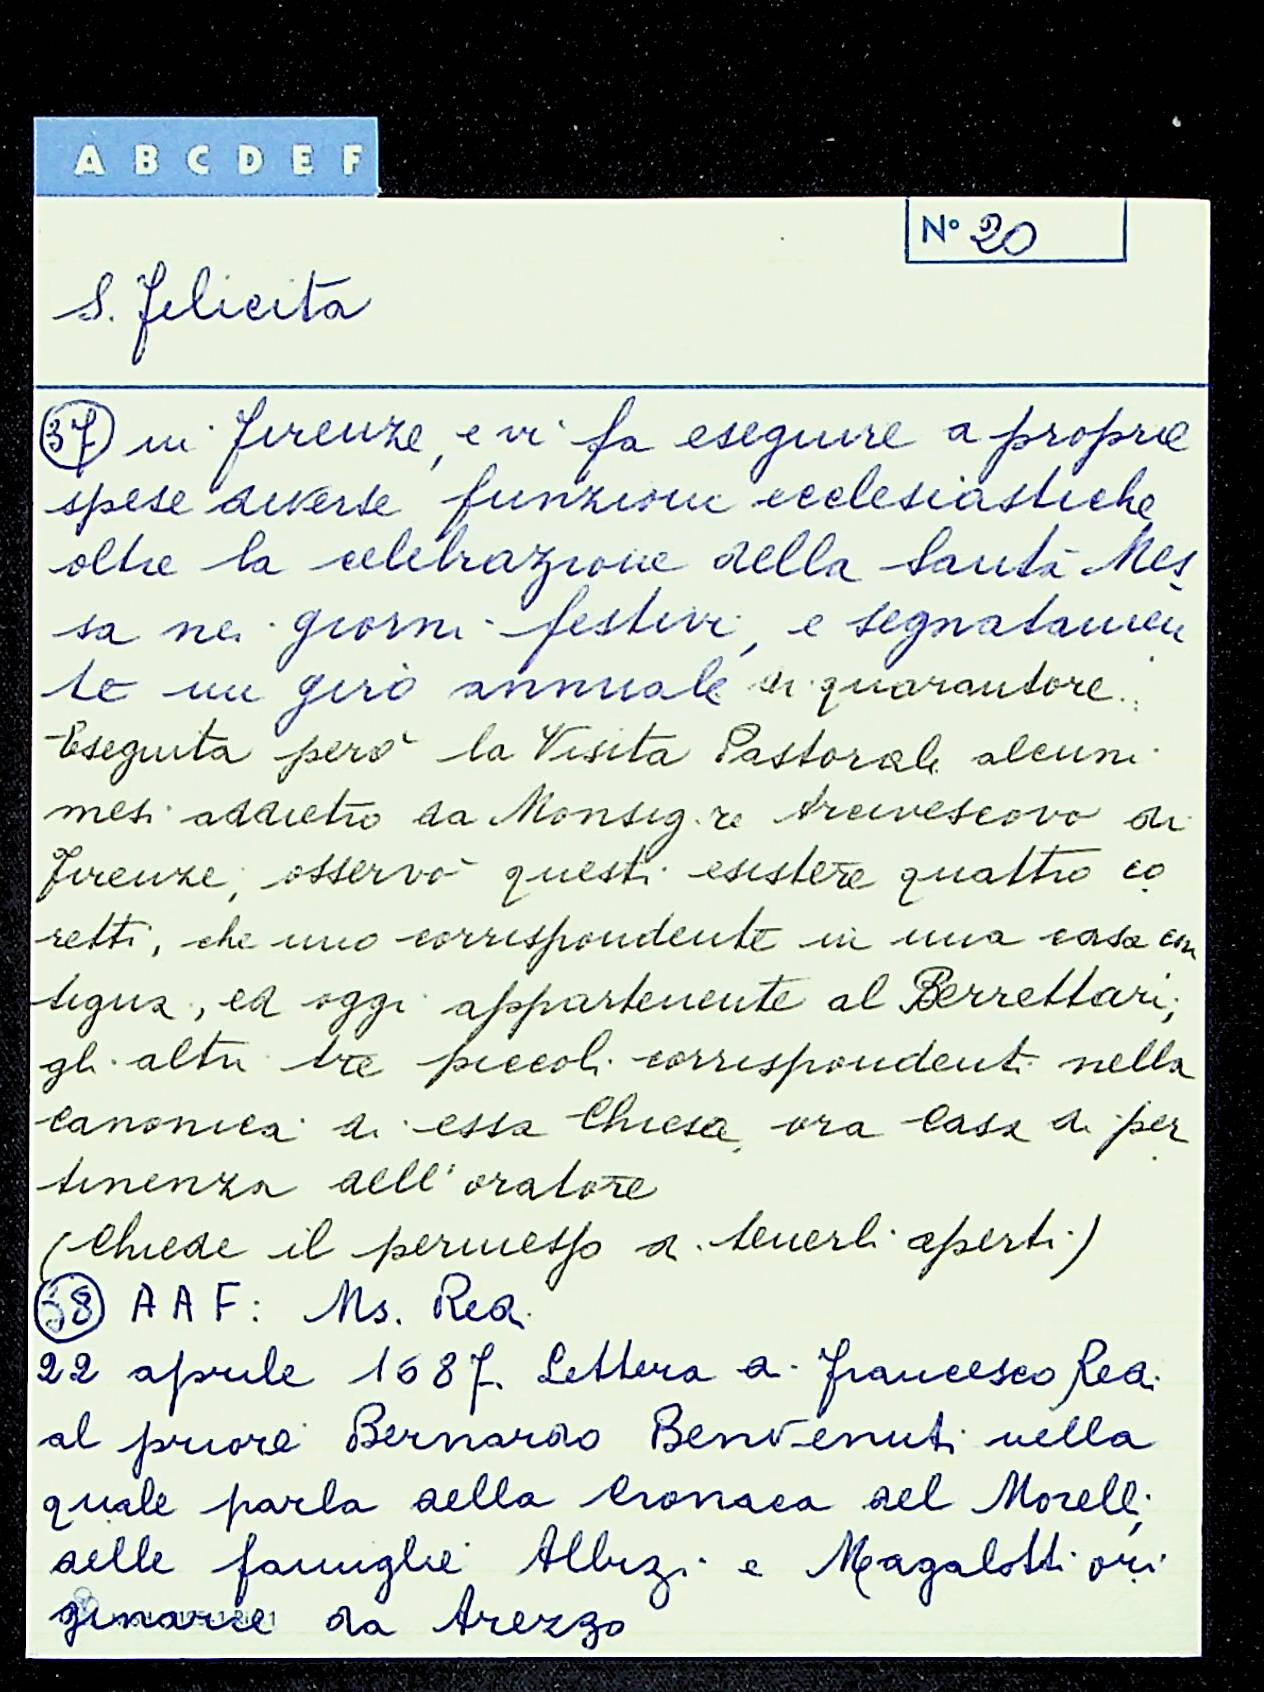 A B C D E F
N° 20
S. Felicita
37 in Firenze, e vi fa eseguire a proprie
spese diverse funzioni ecclesiastiche,
oltre la celebrazione della Santa Mes
sa nei giorni festivi, e segnatamen
te un giro annuale di quarantore.
Eseguita però la Visita Pastorale alcuni
mesi addietro da Monsig.re Arcivescovo di
Firenze, osservò questi esistere quattro co
retti, che uno corrispondente in una casa con
tigua, ed oggi appartenente al Berrettari,
gli altri tre piccoli corrispondenti nella
canonica di essa Chiesa, ora Casa di per
tinenza dell'oratore
(Chiede il permesso di tenerli aperti)
38 A A F: Ms. Redi
22 aprile 1687. Lettera di Francesco Redi
al priore Bernardo Benvenuti nella
quale parla della Cronaca del Morelli,
delle famiglie Albizi e Magalotti ori
ginarie da Arezzo